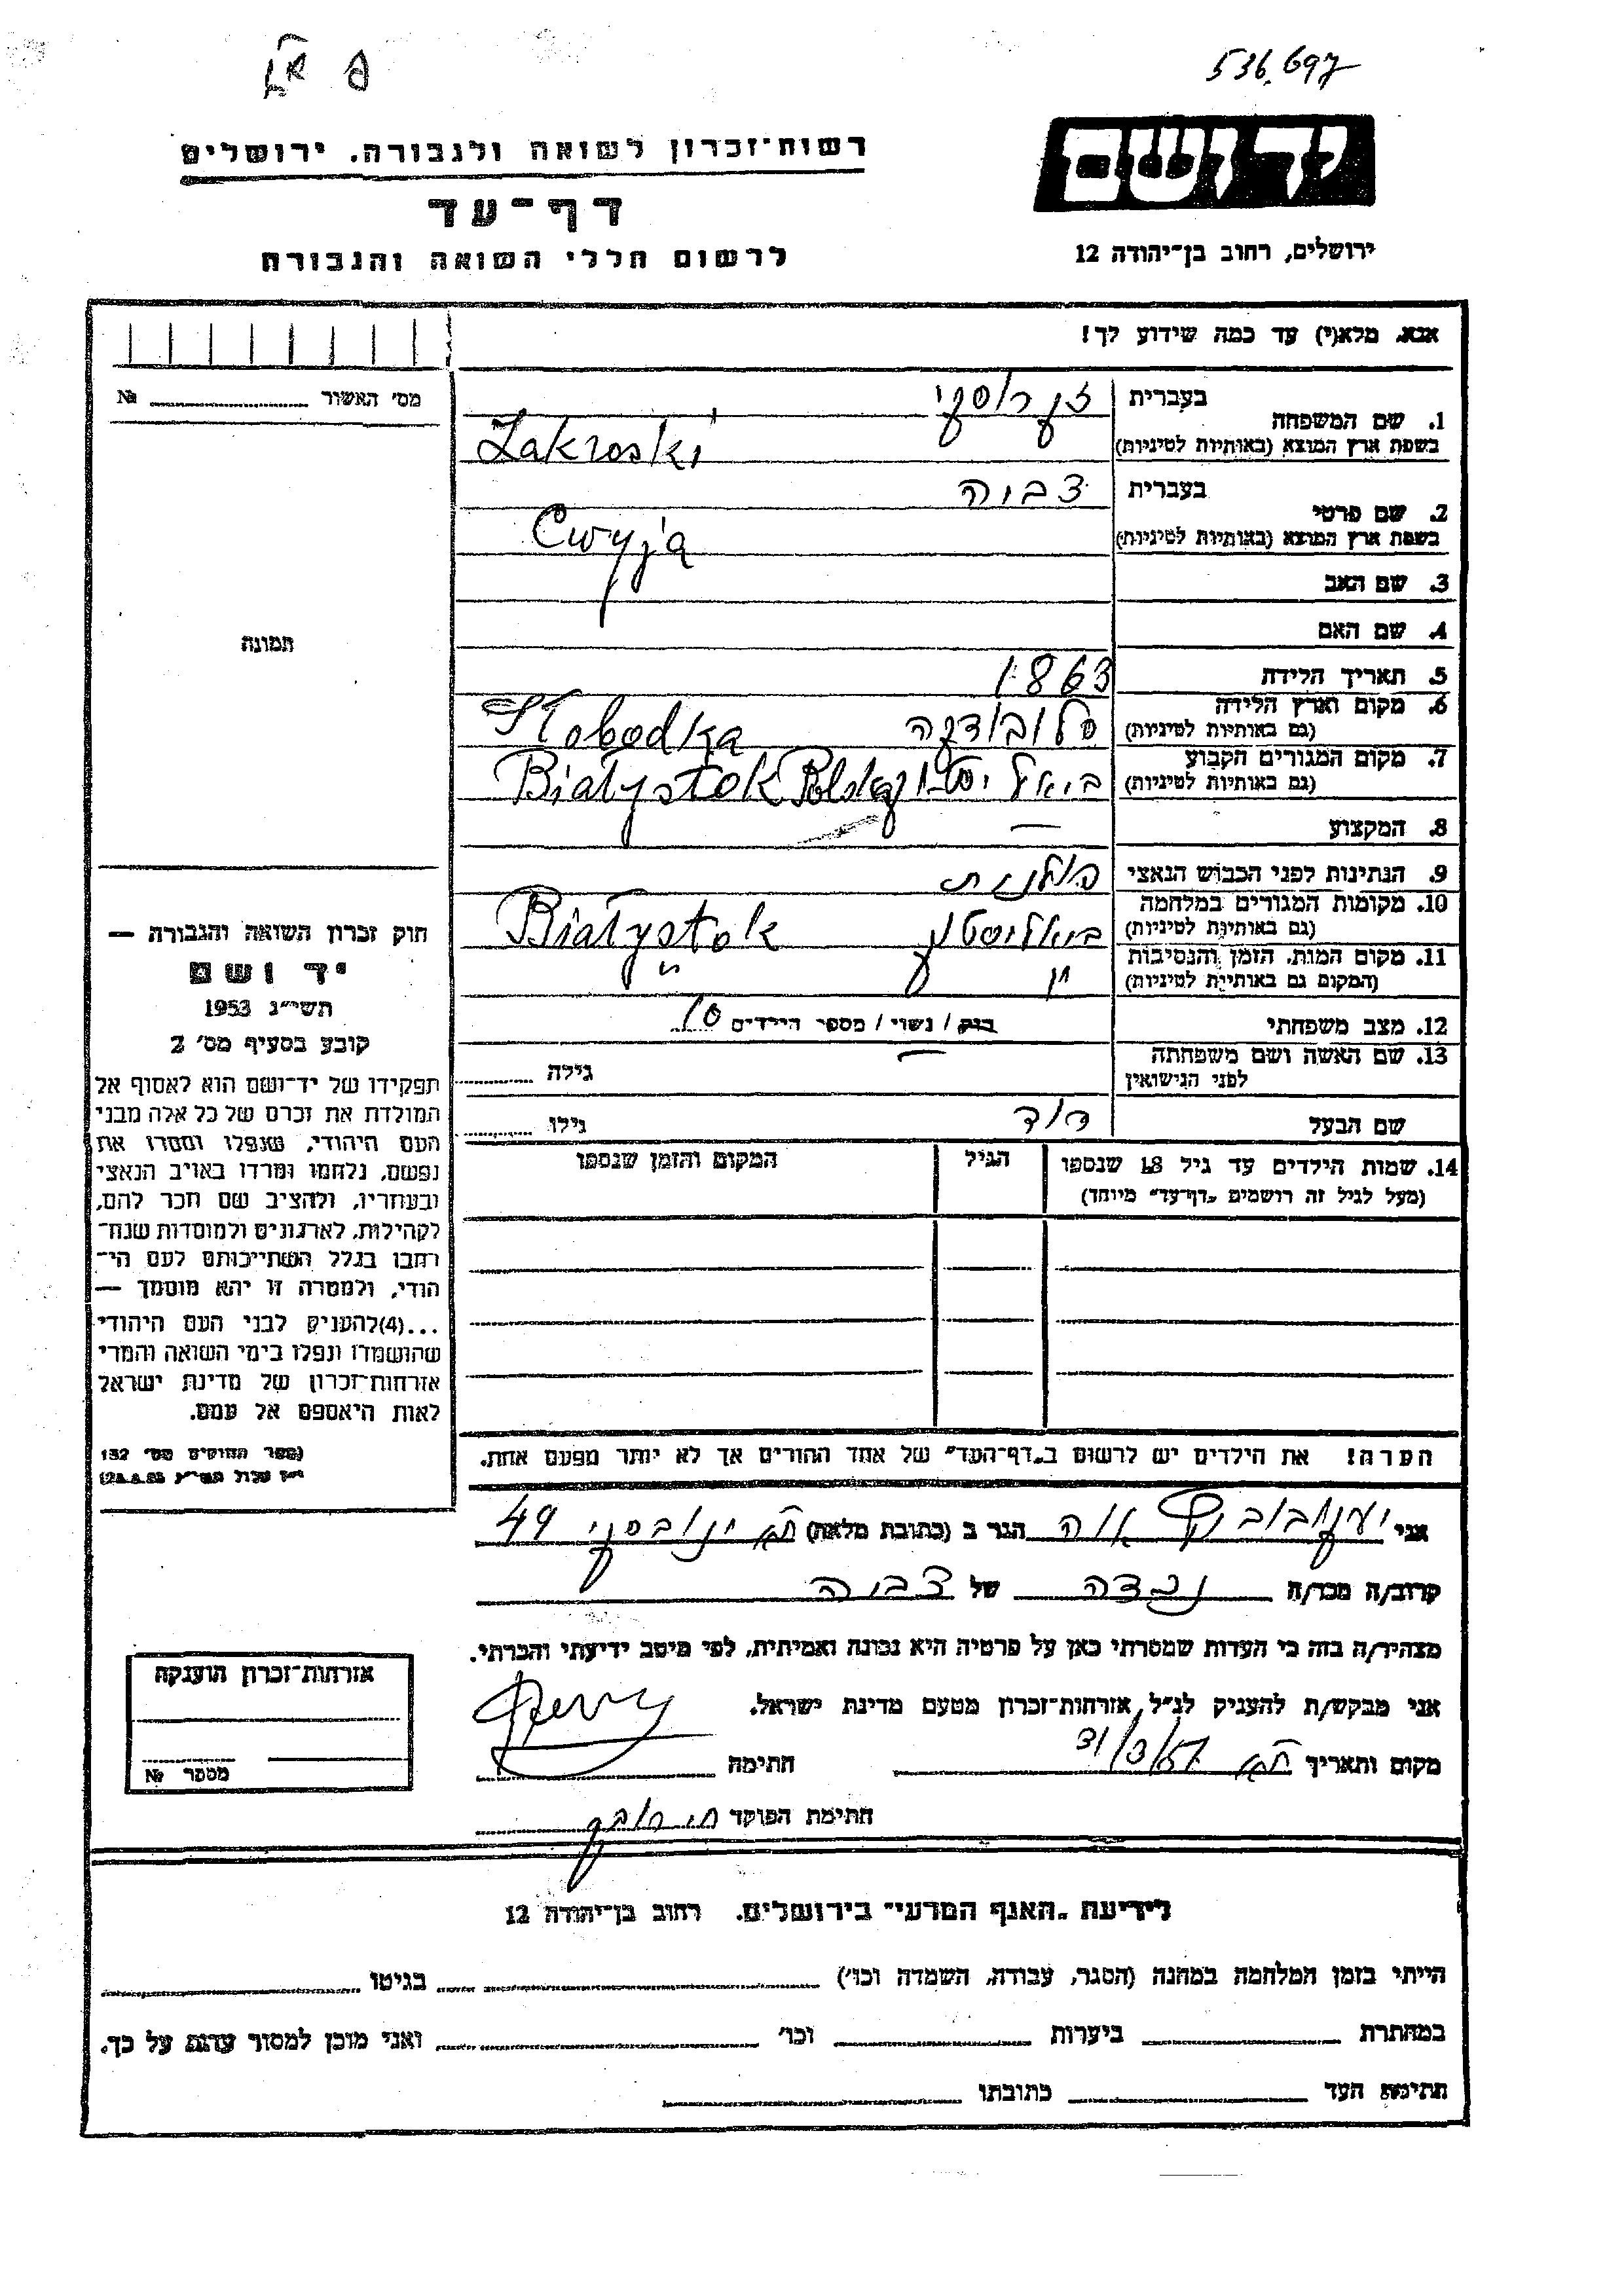 536.697
יד ושם
ירושלים, רחוב בן־יהודה 12
רשות־זכרון לשואה ולגבורה, ירושלים
דף־עד
לרשום חללי השואה והגבורה
אנא, מלא(י) עד כמה שידוע לך!
מס׳ האשור № 
תמונה
1. שם המשפחה בעברית זקרוסקי
בשפת ארץ המוצא (באותיות לטיניות) Zakroski
2. שם פרטי בעברית צביה
בשפת ארץ המוצא (באותיות לטיניות) Cwyja
3. שם האב
4. שם האם
5. תאריך הלידה 1863
6. מקום וארץ הלידה סלובודקה Słobodka
(גם באותיות לטיניות)
7. מקום המגורים הקבוע ביאליסטוק Białystok Polska
(גם באותיות לטיניות)
8. המקצוע —
9. הנתינות לפני הכבוש הנאצי פולנית
10. מקומות המגורים במלחמה ביאליסטוק Białystok
(גם באותיות לטיניות)
11. מקום המות, הזמן והנסיבות
(המקום גם באותיות לטיניות)
12. מצב משפחתי רוק / נשוי / מספר הילדים 10
13. שם האשה ושם משפחתה — גילה
לפני הנישואין
שם הבעל דוד גילו
14. שמות הילדים עד גיל 18 שנספו הגיל המקום והזמן שנספו
(מעל לגיל זה רושמים „דף־עד” מיוחד)
הערה! את הילדים יש לרשום ב„דף־העד” של אחד ההורים אך לא יותר מפעם אחת.
חוק זכרון השואה והגבורה —
יד ושם
תשי״ג 1953
קובע בסעיף מס׳ 2
תפקידו של יד־ושם הוא לאסוף אל
המולדת את זכרם של כל אלה מבני
העם היהודי, שנפלו ומסרו את
נפשם, נלחמו ומרדו באויב הנאצי
ובעוזריו, ולהציב שם וזכר להם,
לקהילות, לארגונים ולמוסדות שנח־
רבו בגלל השתייכותם לעם הי־
הודי, ולמטרה זו יהא מוסמך —
...(4)להעניק לבני העם היהודי
שהושמדו ונפלו בימי השואה והמרי
אזרחות־זכרון של מדינת ישראל
לאות היאספם אל עמם.
(ספר החוקים מס׳ 132
אני יעקובוביץ הגר ב (כתובת מלאה) 49
קרוב/ה מכר/ה נכדה של צביה
מצהיר/ה בזה כי העדות שמסרתי כאן על פרטיה היא נכונה ואמיתית, לפי מיטב ידיעתי והכרתי.
אני מבקש/ת להעניק לנ״ל אזרחות־זכרון מטעם מדינת ישראל.
מקום ותאריך 31/3/57 חתימה
חתימת הפוקד
אזרחות־זכרון הוענקה
מספר №
לידיעת „האגף המדעי” בירושלים, רחוב בן־יהודה 12
הייתי בזמן המלחמה במחנה (הסגר, עבודה, השמדה וכו׳) בגיטו
במחתרת ביערות וכו׳ ואני מוכן למסור עדות על כך.
חתימת העד כתובתו